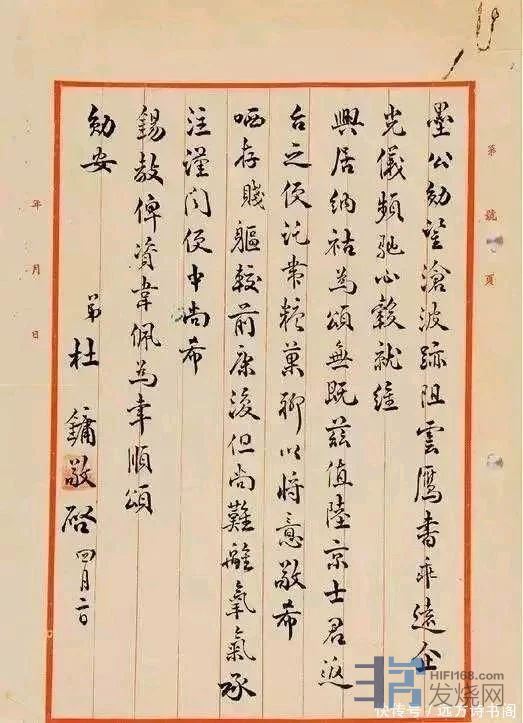 第 號 頁
墨公勛鑒滄波跡阻雲鴈書乖遠企
光儀頻馳心轂就維
興居納祜為頌無既茲值陸京士君返
台之便託帶糖菓聊以將意敬希
哂存賤軀較前康復但尚難離氧氣承
注謹聞便中尚希
錫教俾資韋佩為幸順頌
勛安
弟杜鏞敬啟 四月二日
年 月 日
HIFI168.com
发烧网
快传号/远方诗书阁